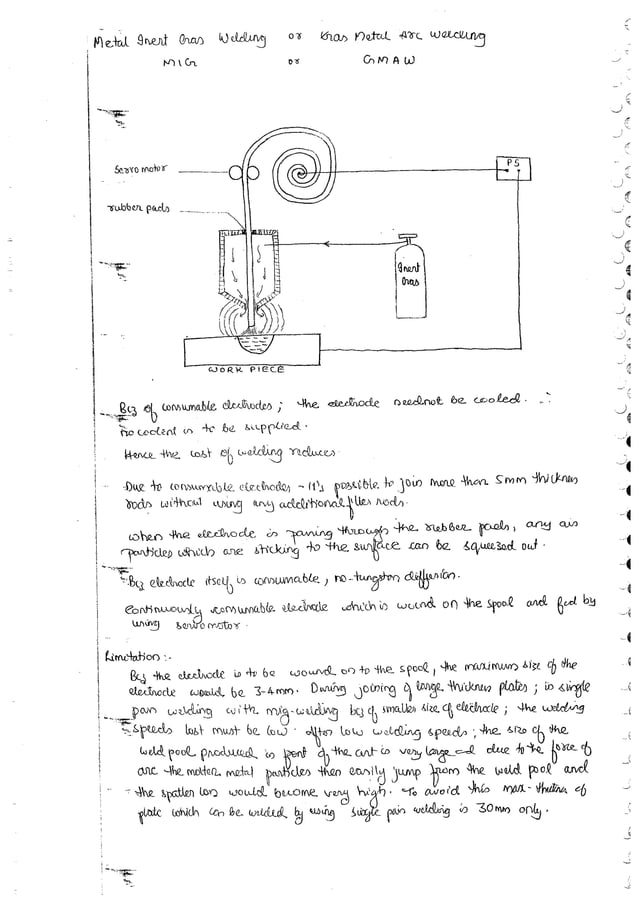 Metal Inert Gas Welding or Gas Metal Arc Welding
MIG or GMAW
PS
Servo motor
rubber pads
Inert
Gas
WORK PIECE
Bcz of consumable electrodes; the electrode neednot be cooled. ∴
no coolent is to be supplied.
Hence the cost of welding reduces.
Due to consumable electrodes - It's possible to join more than 5mm thickness
rods without using any additional filler rods.
when the electrode is passing through the rubber pads, any air
particles which are sticking to the surface can be squeezed out.
Bcz electrode itself is consumable, no-tungston diffusion.
Continuously consumable electrode which is wound on the spool and fed by
using servomotor.
Limitation :-
Bcz the electrode is to be wound on to the spool, the maximum size of the
electrode would be 3-4mm. During joining of large thickness plates; in single
pass welding with mig-welding bcz of smaller size of electrode; the welding
speeds must be low. After low welding speeds; the size of the
weld pool produced in front of the arc is very large and due to the force of
arc the molten metal particles then easily jump from the weld pool and
the spatter loss would become very high. To avoid this max-thickness of
plate which can be welded by using single pass welding is 30mm only.